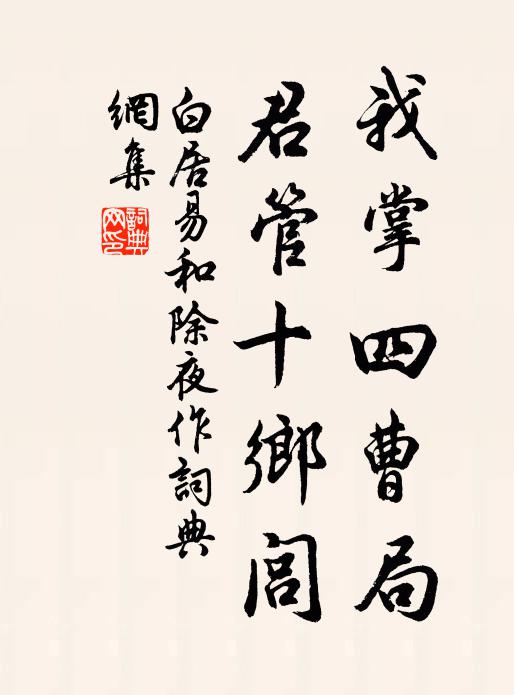 我掌四曹局
君管十鄉閭
白居易和除夜作詞典
網集
詞典網印